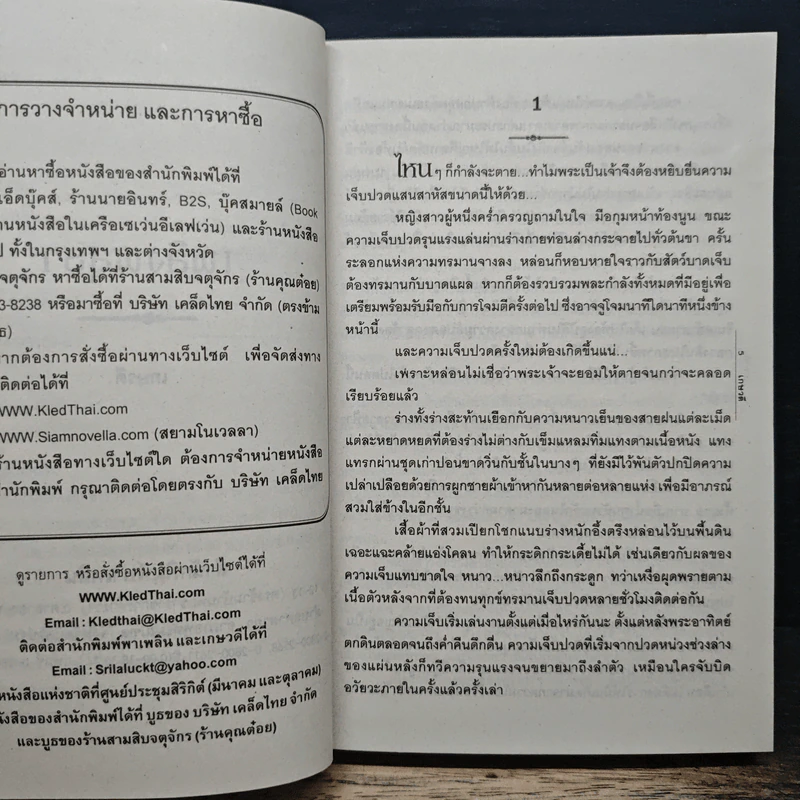 การวางจำหน่าย และการหาซื้อ
อ่านหาซื้อหนังสือของสำนักพิมพ์ได้ที่
เอ็ดบุ๊คส์, ร้านนายอินทร์, B2S, บุ๊คสมายล์ (Book
านหนังสือในเครือเซเว่นอีเลฟเว่น) และร้านหนังสือ
ป ทั้งในกรุงเทพฯ และต่างจังหวัด
จตุจักร หาซื้อได้ที่ร้านสามสิบจตุจักร (ร้านคุณต๋อย)
3-8238 หรือมาซื้อที่ บริษัท เคล็ดไทย จำกัด (ตรงข้าม
ธ)
ากต้องการสั่งซื้อผ่านทางเว็บไซต์ เพื่อจัดส่งทาง
ติดต่อได้ที่
WWW.KledThai.com
WWW.Siamnovella.com (สยามโนเวลลา)
ร้านหนังสือทางเว็บไซต์ใด ต้องการจำหน่ายหนังสือ
ำนักพิมพ์ กรุณาติดต่อโดยตรงกับ บริษัท เคล็ดไทย
ดูรายการ หรือสั่งซื้อหนังสือผ่านเว็บไซต์ได้ที่
WWW.KledThai.com
Email : Kledthai@KledThai.com
ติดต่อสำนักพิมพ์พาเพลิน และเกษวดีได้ที่
Email : Srilaluckt@yahoo.com
หนังสือแห่งชาติที่ศูนย์ประชุมสิริกิต์ (มีนาคม และตุลาคม)
นังสือของสำนักพิมพ์ได้ที่ บูธของ บริษัท เคล็ดไทย จำกัด
และบูธของร้านสามสิบจตุจักร (ร้านคุณต๋อย)
1
ไหนๆ ก็กำลังจะตาย...ทำไมพระเป็นเจ้าจึงต้องหยิบยื่นความ
เจ็บปวดแสนสาหัสขนาดนี้ให้ด้วย...
หญิงสาวผู้หนึ่งคร่ำครวญถามในใจ มือกุมหน้าท้องนูน ขณะ
ความเจ็บปวดรุนแรงแล่นผ่านร่างกายท่อนล่างกระจายไปทั่วต้นขา ครั้น
ระลอกแห่งความทรมานจางลง หล่อนก็หอบหายใจราวกับสัตว์บาดเจ็บ
ต้องทรมานกับบาดแผล หากก็ต้องรวบรวมพละกำลังทั้งหมดที่มีอยู่เพื่อ
เตรียมพร้อมรับมือกับการโจมตีครั้งต่อไป ซึ่งอาจจู่โจมนาทีใดนาทีหนึ่งข้าง
หน้านี้
และความเจ็บปวดครั้งใหม่ต้องเกิดขึ้นแน่...
เพราะหล่อนไม่เชื่อว่าพระเจ้าจะยอมให้ตายจนกว่าจะคลอด
เรียบร้อยแล้ว
ร่างทั้งร่างสะท้านเยือกกับความหนาวเย็นของสายฝนแต่ละเม็ด
แต่ละหยาดหยดที่ต้องร่างไม่ต่างกับเข็มแหลมทิ่มแทงตามเนื้อหนัง แทง
แทรกผ่านชุดเก่าปอนขาดวิ่นกับชั้นในบางๆ ที่ยังมีไว้พันตัวปกปิดความ
เปล่าเปลือยด้วยการผูกชายผ้าเข้าหากันหลายต่อหลายแห่ง เพื่อมีอาภรณ์
สวมใส่ข้างในอีกชั้น
เสื้อผ้าที่สวมเปียกโชกแนบร่างหนักอึ้งตรึงหล่อนไว้บนพื้นดิน
เฉอะแฉะคล้ายแอ่งโคลน ทำให้กระดิกกระเดี้ยไม่ได้ เช่นเดียวกับผลของ
ความเจ็บแทบขาดใจ หนาว...หนาวลึกถึงกระดูก ทว่าเหงื่อผุดพรายตาม
เนื้อตัวหลังจากที่ต้องทนทุกข์ทรมานเจ็บปวดหลายชั่วโมงติดต่อกัน
ความเจ็บเริ่มเล่นงานตั้งแต่เมื่อไหร่กันนะ ตั้งแต่หลังพระอาทิตย์
ตกดินตลอดจนถึงค่ำคืนดึกดื่น ความเจ็บปวดที่เริ่มจากปวดหน่วงช่วงล่าง
ของแผ่นหลังก็ทวีความรุนแรงจนขยายมาถึงลำตัว เหมือนใครจับบิด
อวัยวะภายในครั้งแล้วครั้งเล่า
๕
เกษวดี